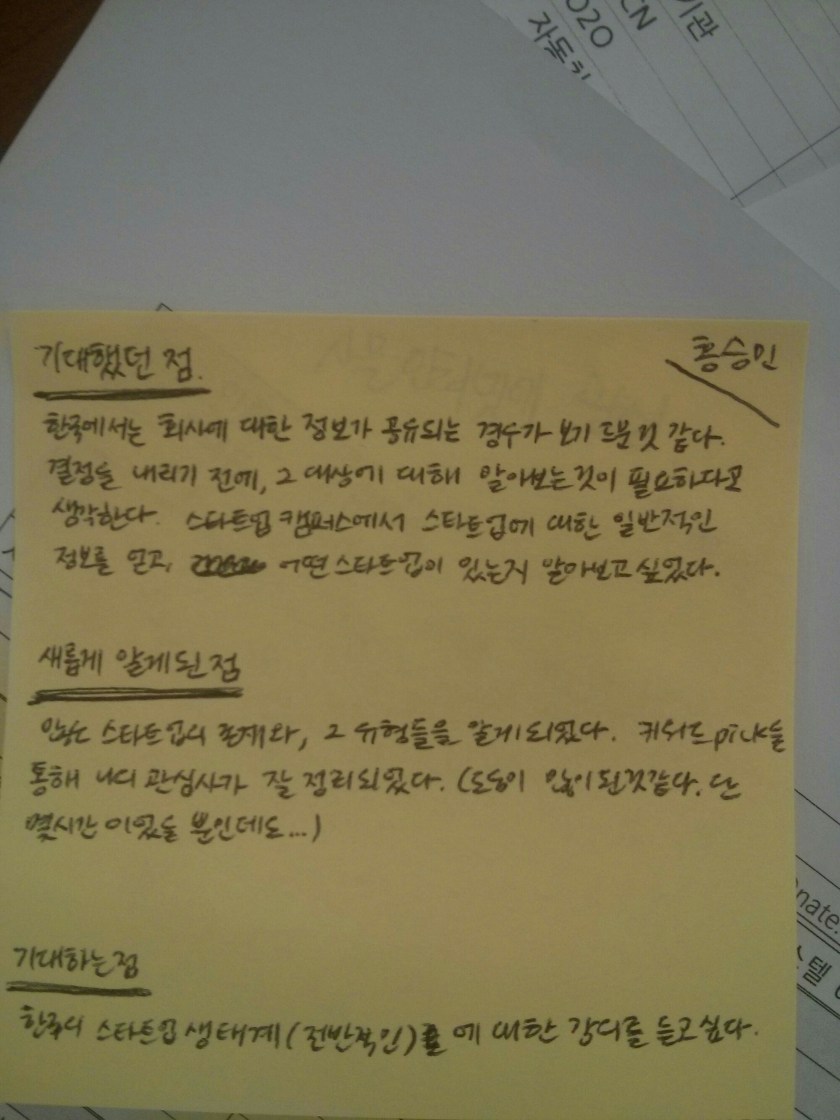 기관
CN
2020
자동차
기대했던 점.
홍승인
한국에서는 회사에 대한 정보가 공유되는 경우가 보기 드문 것 같다.
결정을 내리기 전에, 그 대상에 대해 알아보는것이 필요하다고
생각한다. 스타트업 캠퍼스에서 스타트업에 대한 일반적인
정보를 얻고, 어떤 스타트업이 있는지 알아보고 싶었다.
새롭게 알게된 점
많은 스타트업의 존재와, 그 유형들을 알게 되었다. 키워드 pick을
통해 나의 관심사가 잘 정리되었다. (도움이 많이 된것같다. 단
몇시간 이었을 뿐인데도...)
기대하는점
한국의 스타트업 생태계(전반적인)에 대한 강의를 듣고싶다.
nate.
스텔